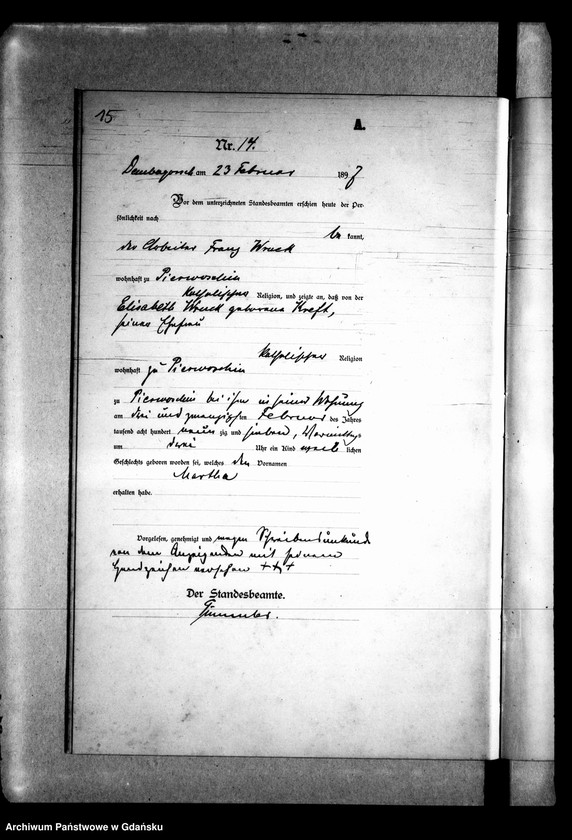 15
A.
Nr. 14.
Dembogorsch am 23 Februar 1897
Vor dem unterzeichneten Standesbeamten erschien heute der Per-
sönlichkeit nach
be kannt,
der Arbeiter Franz Wruck
wohnhaft zu Pierwoschin
katholischer Religion, und zeigte an, daß von der
Elisabeth Wruck geborene Kreft,
seiner Ehefrau
katholischer Religion
wohnhaft zu Pierwoschin
zu Pierwoschin bei ihm in seiner Wohnung
am drei und zwanzigsten Februar des Jahres
tausend acht hundert neun zig und sieben, Vormittags
um drei Uhr ein Kind weib lichen
Geschlechts geboren worden sei, welches den Vornamen
Martha
erhalten habe.
Vorgelesen, genehmigt und wegen Schreibensunkunde
von dem Anzeigenden mit seinem
Handzeichen versehen +++
Der Standesbeamte.
Archiwum Państwowe w Gdańsku